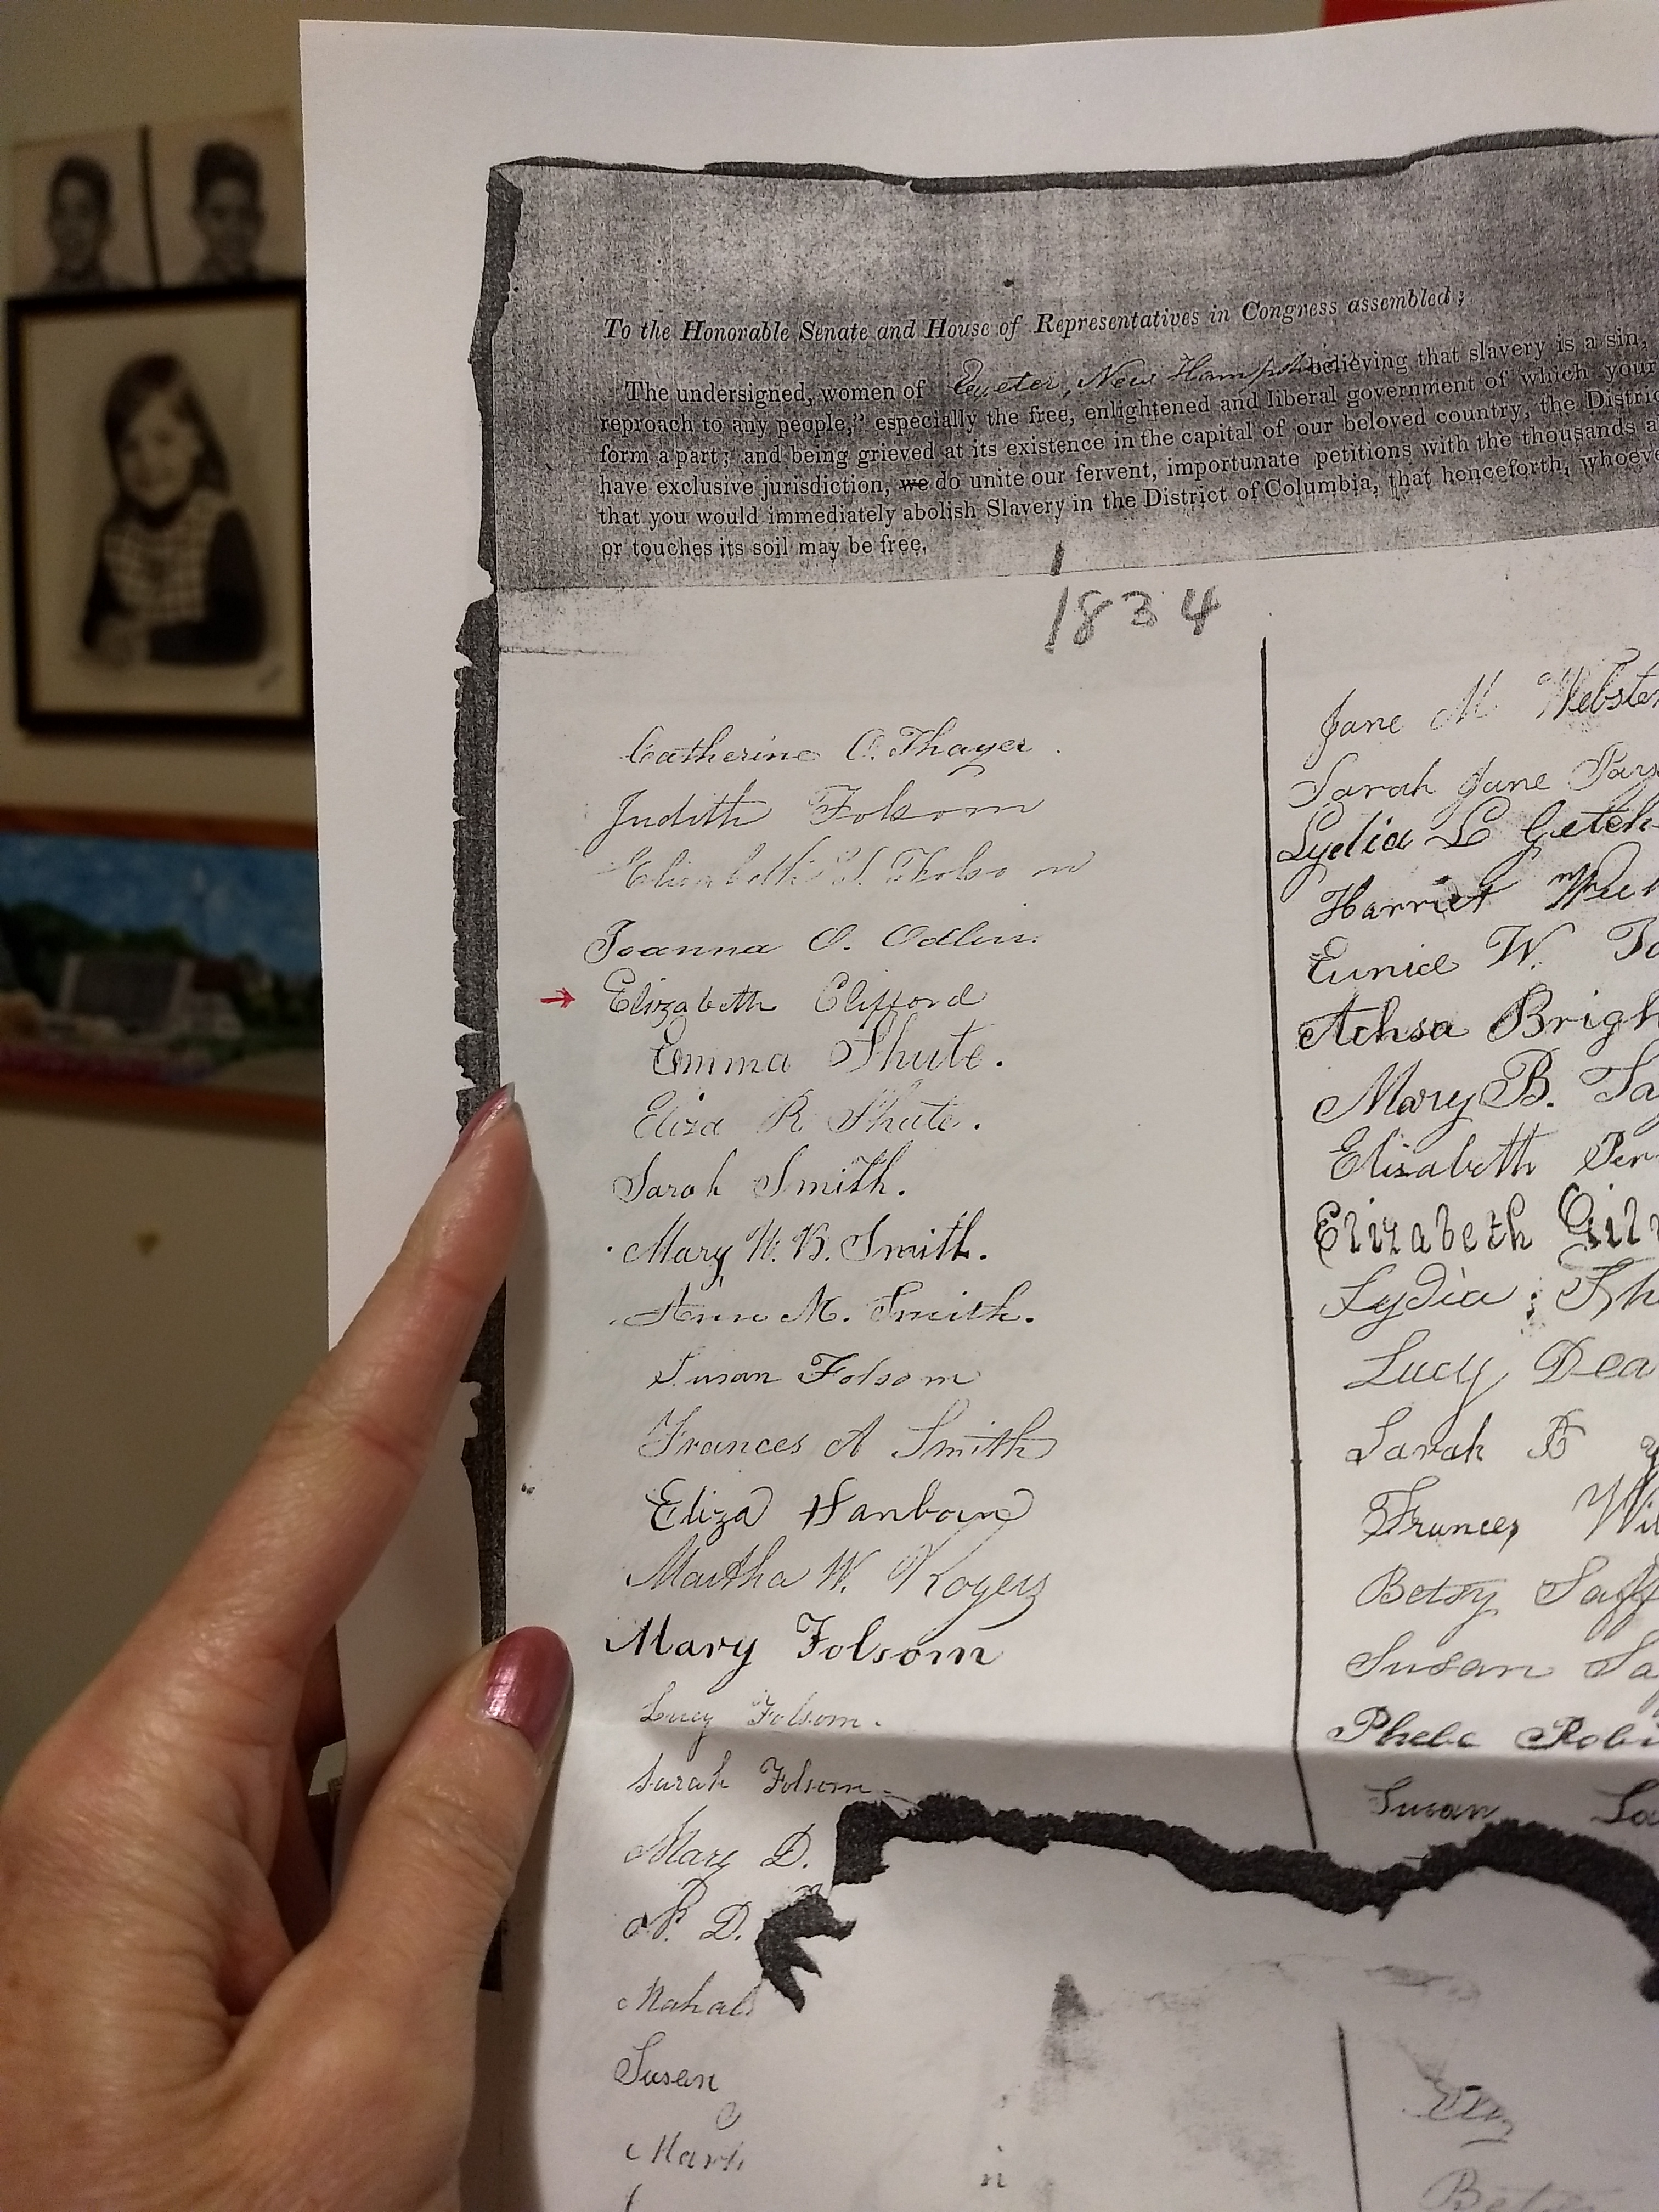 To the Honorable Senate and House of Representatives in Congress assembled;
The undersigned, women of Exeter, New Hampshire believing that slavery is a sin,
reproach to any people," especially the free, enlightened and liberal government of which your
form a part; and being grieved at its existence in the capital of our beloved country, the Distric
have exclusive jurisdiction, we do unite our fervent, importunate petitions with the thousands a
that you would immediately abolish Slavery in the District of Columbia, that henceforth, whoeve
or touches its soil may be free.
1834
Catherine O. Thayer.
Judith Folsom
Elizabeth S. Folsom
Joanna O. Odlin.
→ Elizabeth Clifford
Emma Shute.
Eliza R Shute.
Sarah Smith.
Mary W. B. Smith.
Ann M. Smith.
Susan Folsom
Frances A Smith
Eliza Sanborn
Martha W. Rogers
Mary Folsom
Lucy Folsom.
Sarah Folsom.
Mary D.
N. D.
Mahal
Susan
Mart
Jane M Webster
Sarah Jane Pars
Lydia L Getch
Harriet
Eunice W. To
Achsa Brigh
Mary B. Ta
Elisabeth Per
Elizabeth Gil
Lydia
Lucy Dea
Sarah B
Frances Wil
Betsy Saff
Susan Sa
Phebe Robi
Susan La